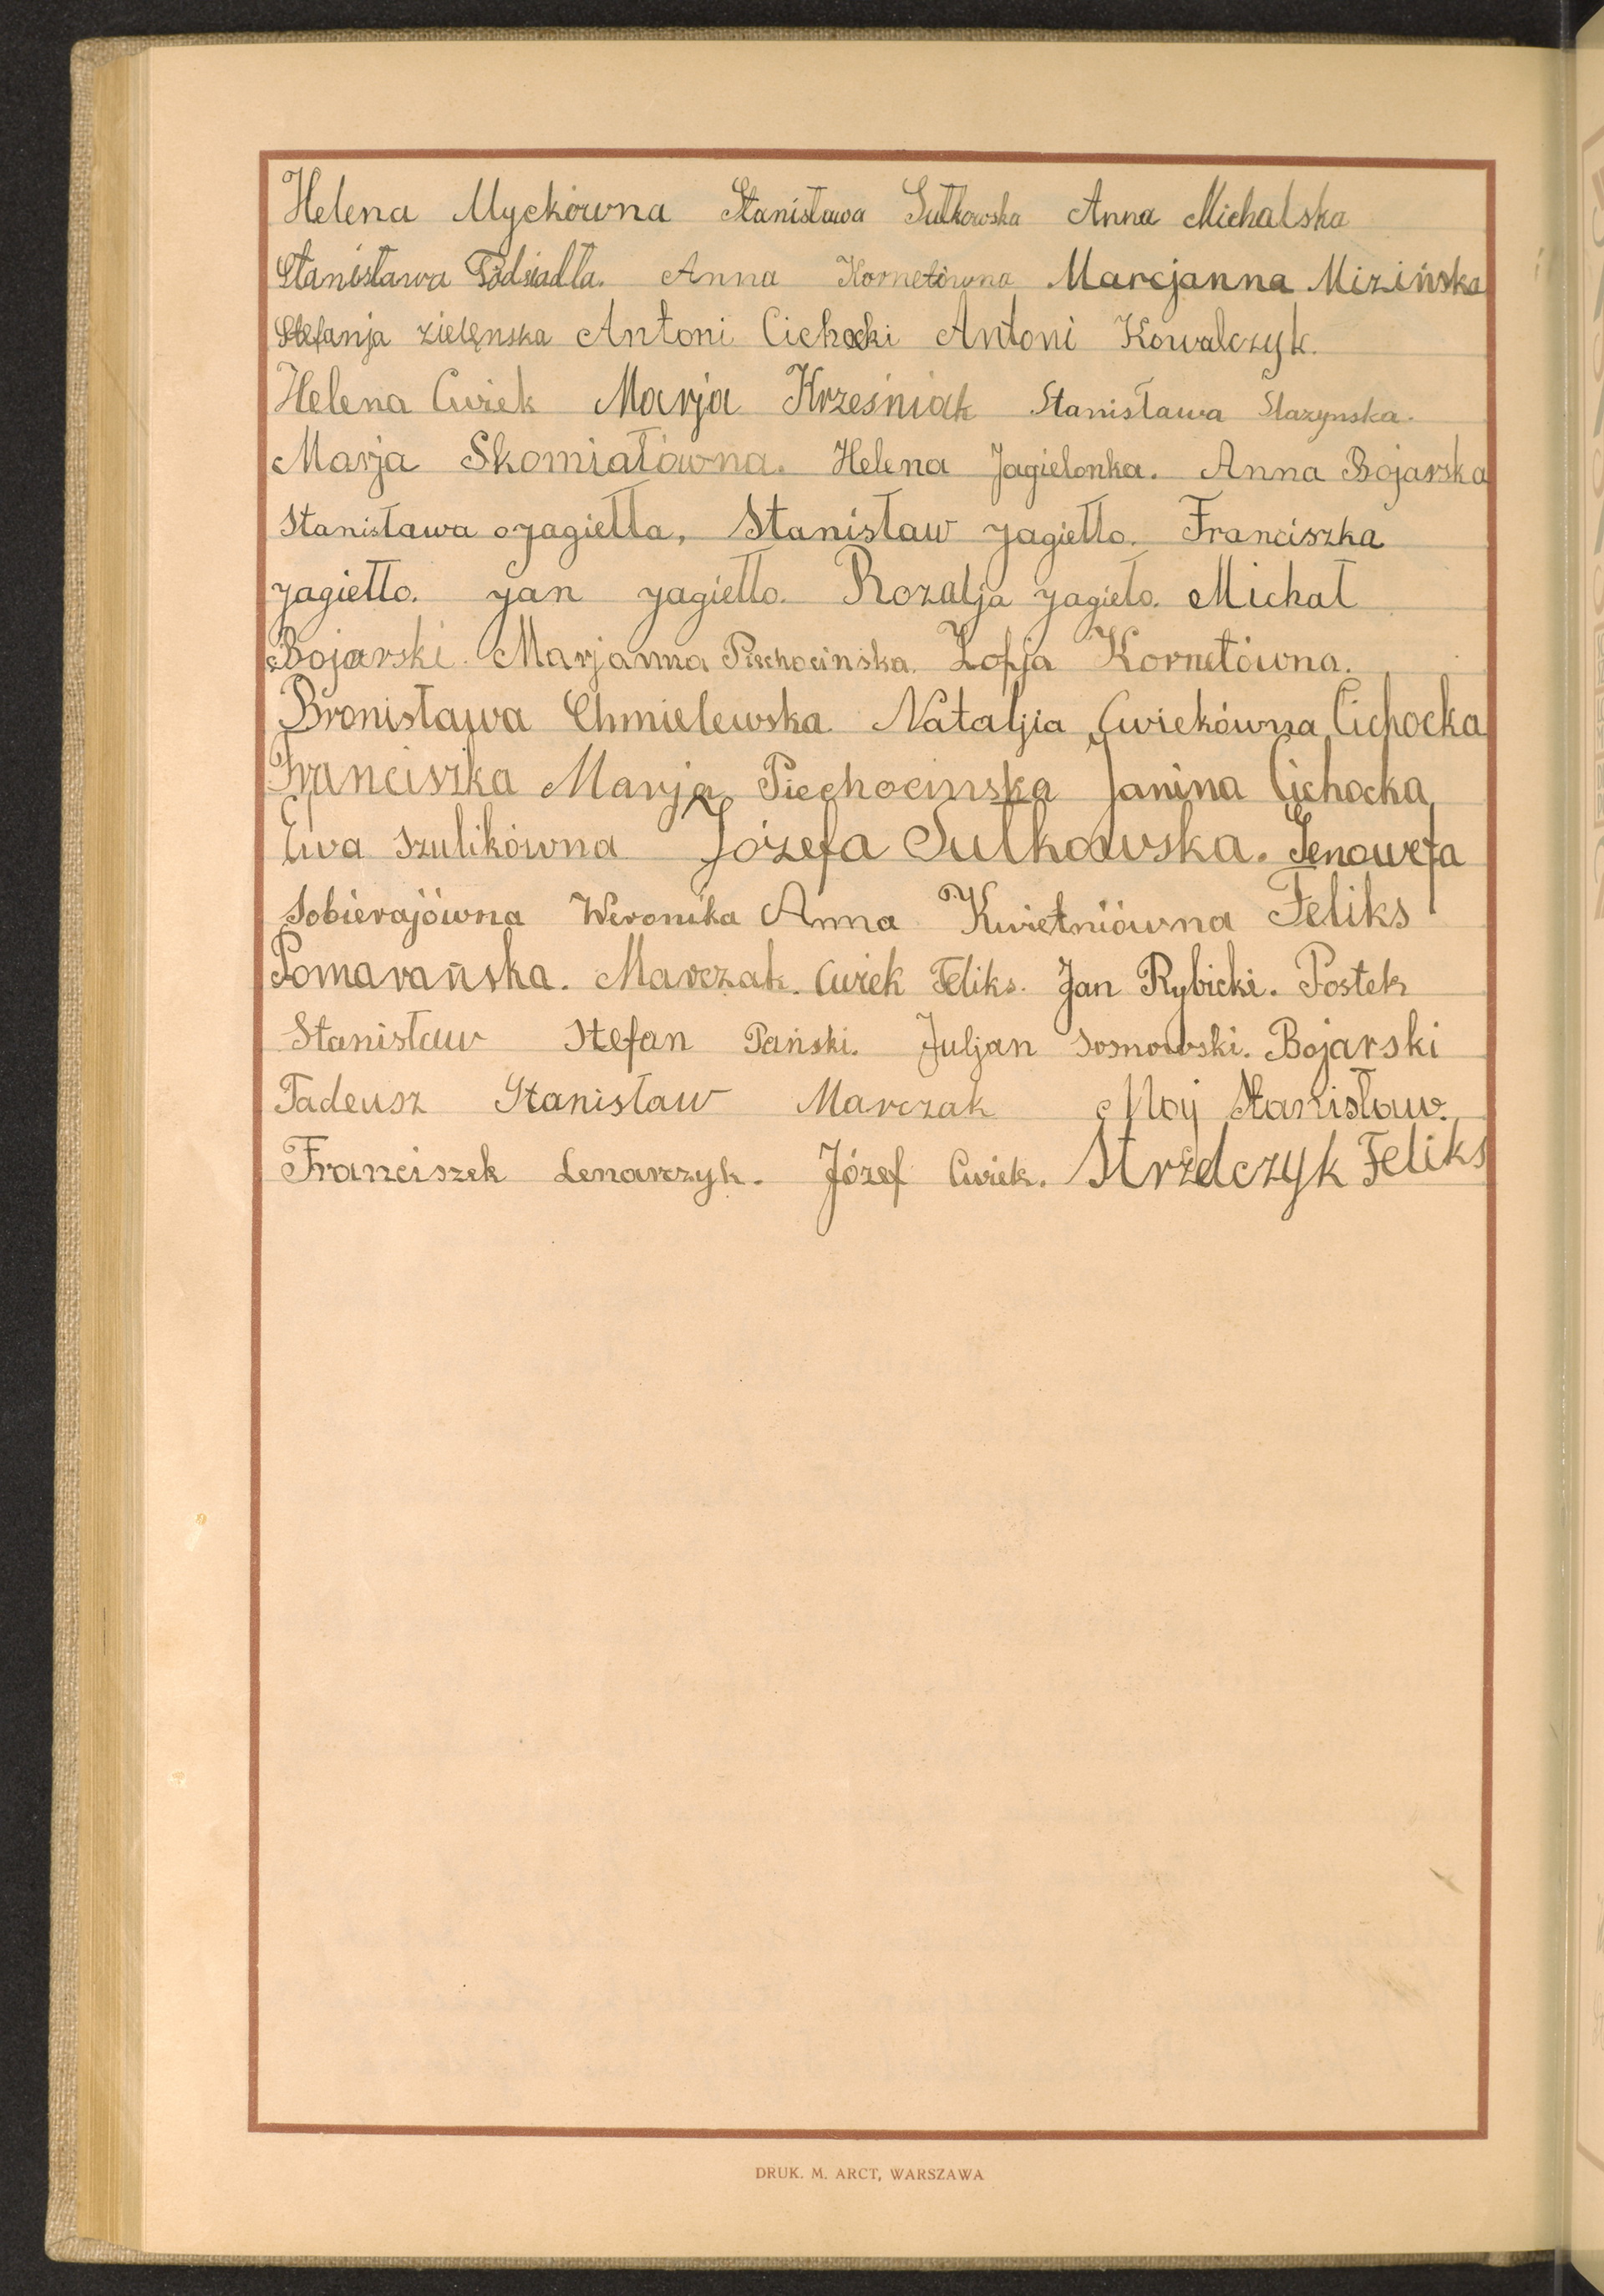 Helena Myckówna Stanisława Sułkowska Anna Michalska
Stanisława Podsiadła. Anna Kornetówna Marcjanna Mizińska
Stefanja Zielęnska Antoni Cichocki Antoni Kowalczyk.
Helena Cwiek Marja Krześniak Stanisława Slazynska.
Marja Skomiałówna. Helena Jagielonka. Anna Bojarska
Stanisława Jagiełła, Stanisław Jagiełło. Franciszka
Jagiełło. Jan Jagiełło. Rozalja Jagieło. Michał
Bojarski. Marjanna Piechocinska. Zofja Kornetówna.
Bronisława Chmielewska Nataljia Cwiekówna Cichocka
Franciszka Marja Piechocinska Janina Cichocka
Ewa Szulikówna Józefa Sulkowska. Genowefa
Sobierajówna Weronika Anna Kwietniówna Feliks
Pomarańska. Marczak. Cwiek Feliks. Jan Rybicki. Postek
Stanisław Stefan Pański. Juljan Sosnowski. Bojarski
Tadeusz Stanisław Marczak Moij Stanisław.
Franciszek Lenarczyk. Józef Cwiek. Strzelczyk Feliks
DRUK. M. ARCT, WARSZAWA